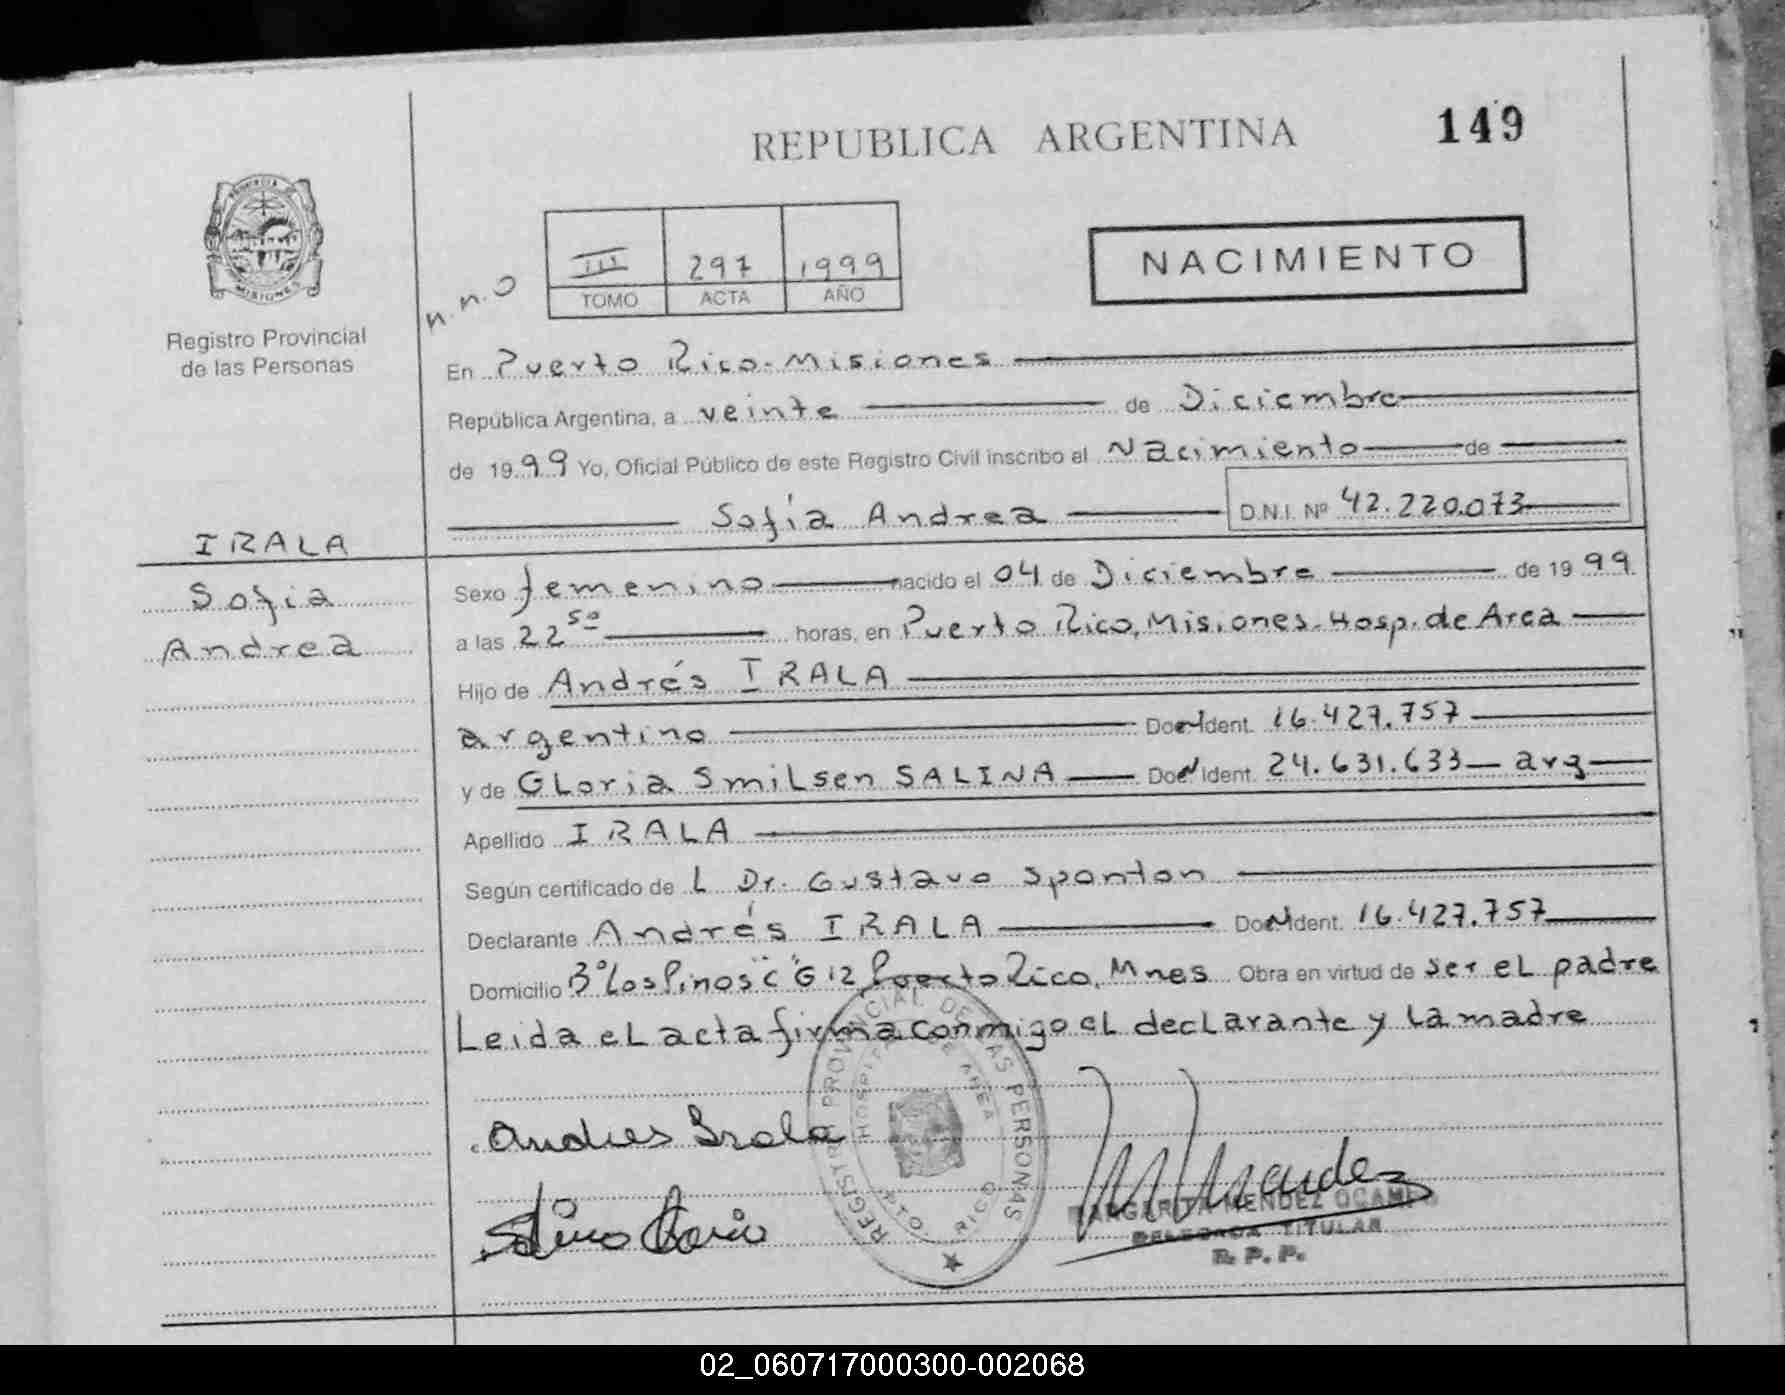 REPUBLICA ARGENTINA
149
PROVINCIA DE
MISIONES
Registro Provincial
de las Personas
n.n.o
III 297 1999
TOMO ACTA AÑO
NACIMIENTO
En Puerto Rico - Misiones
República Argentina, a veinte de Diciembre
de 1999 Yo, Oficial Público de este Registro Civil inscribo el Nacimiento de
Sofía Andrea D.N.I. Nº 42.220.073
IRALA
Sofia
Andrea
Sexo femenino nacido el 04 de Diciembre de 1999
a las 22 50 horas, en Puerto Rico, Misiones - Hosp. de Area
Hijo de Andrés IRALA
argentino Doc. Ident. 16.427.757
y de GLoria SmiLsen SALINA Doc. Ident. 24.631.633 - arg
Apellido IRALA
Según certificado de L Dr. Gustavo Sponton
Declarante Andrés IRALA Doc. Ident. 16.427.757
Domicilio Bº Los Pinos "C" G 12 Puerto Rico, Mnes Obra en virtud de ser eL padre
Leida eL acta firma conmigo eL decLarante y La madre
REGISTRO PROVINCIAL DE LAS PERSONAS
HOSPITAL DE AREA
PTO. RICO
Andres Irala
Salina Gloria
M Mendez
MARGARITA MENDEZ OCAMPO
DELEGADA TITULAR
R. P. P.
02_060717000300-002068